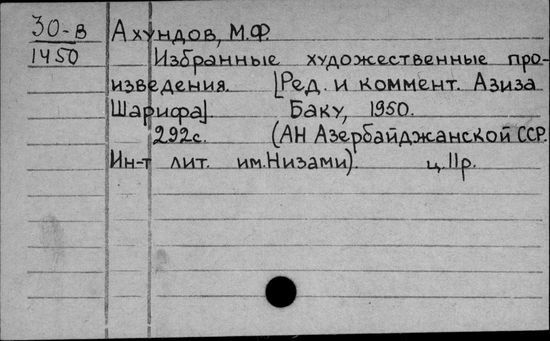 30-в
1450
Ахундов, М.Ф.
Избранные художественные про-
изведения. [Ред. и коммент. Азиза
Шарифа]. Баку, 1950.
292с. (АН Азербайджанской ССР.
Ин-т лит. им.Низами). ц.11р.